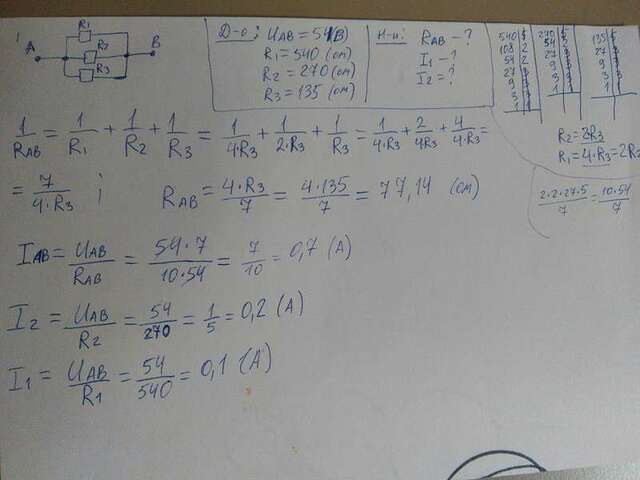 1
R1
A R2 B
R3
Д-о: UAB = 54 (В)
R1 = 540 (ом)
R2 = 270 (ом)
R3 = 135 (ом)
Н-и: RAB - ?
I1 - ?
I2 = ?
540 5
108 2
54 2
27 3
9 3
3 3
1
270 5
54 2
27 3
9 3
3 3
1
135 5
27 3
9 3
3 3
1
R1 = 4·R3 = 2R2
1/RAB = 1/R1 + 1/R2 + 1/R3 = 1/4R3 + 1/2·R3 + 1/R3 = 1/4·R3 + 2/4R3 + 4/4·R3 =
= 7/4·R3 ; RAB = 4·R3/7 = 4·135/7 = 77,14 (ом)
2·2·27·5/7 = 10·54/7
IAB = UAB/RAB = 54·7/10·54 = 7/10 = 0,7 (А)
I2 = UAB/R2 = 54/270 = 1/5 = 0,2 (А)
I1 = UAB/R1 = 54/540 = 0,1 (А)